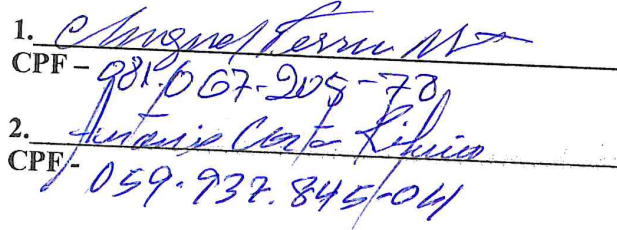 1. Miguel
CPF - 081.067.205-78
2. Antonio Costa Ribeiro
CPF - 059.937.845-04